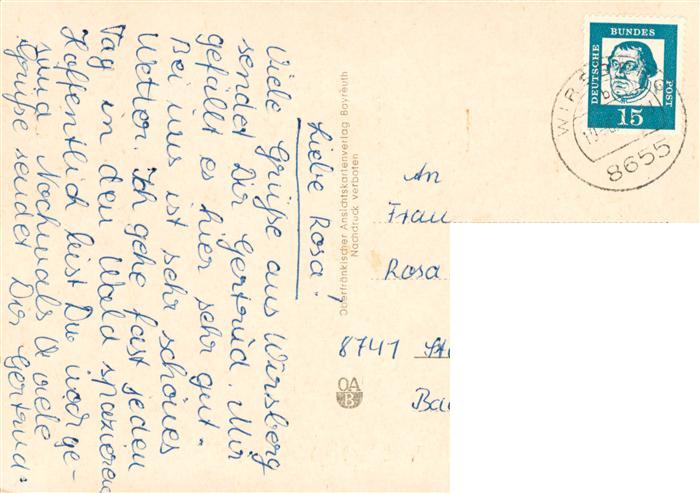 Liebe Rosa!
Viele Grüße aus Wirsberg
sendet Dir Gertrud. Mir
gefällt es hier sehr gut.
Bei uns ist sehr schönes
Wetter. Ich gehe fast jeden
Tag in den Wald spazieren
Hoffentlich bist Du
Nochmals viele
Grüße sendet Dir Gertrud.
Oberfränkischer Ansichtskartenverlag Bayreuth
Nachdruck verboten
OA
B
DEUTSCHE BUNDES POST
15
8655
An
Frau
Rosa
8741